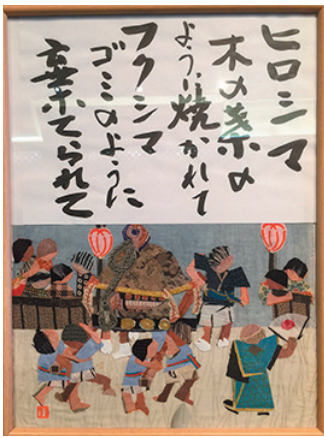 ヒロシマ
木の葉の
ように焼かれて
フクシマ
ゴミのように
棄てられて